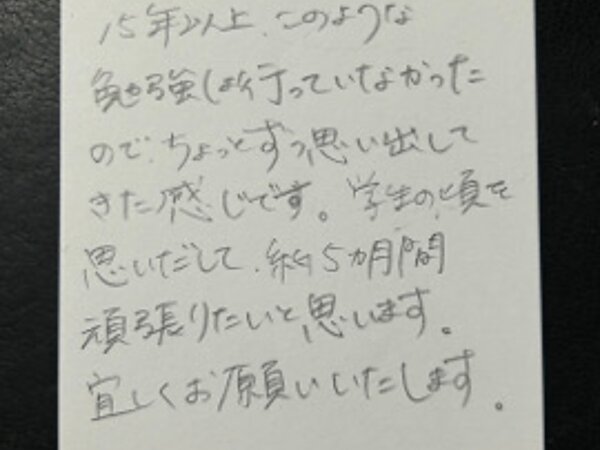 15年以上、このような
勉強は行っていなかった
ので、ちょっとずつ思い出して
きた感じです。学生の頃を
思いだして、約5カ月間
頑張りたいと思います。
宜しくお願いいたします。